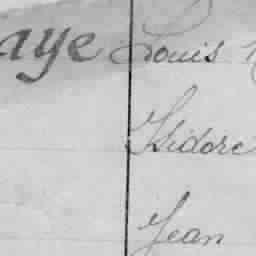 aye Louis
Isidore
Jean